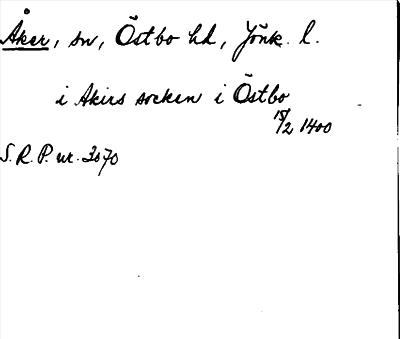 Åker, sn, Östbo hd, Jönk. l.
i Akirs socken i Östbo
15/2 1400
S.R.P. nr. 3070